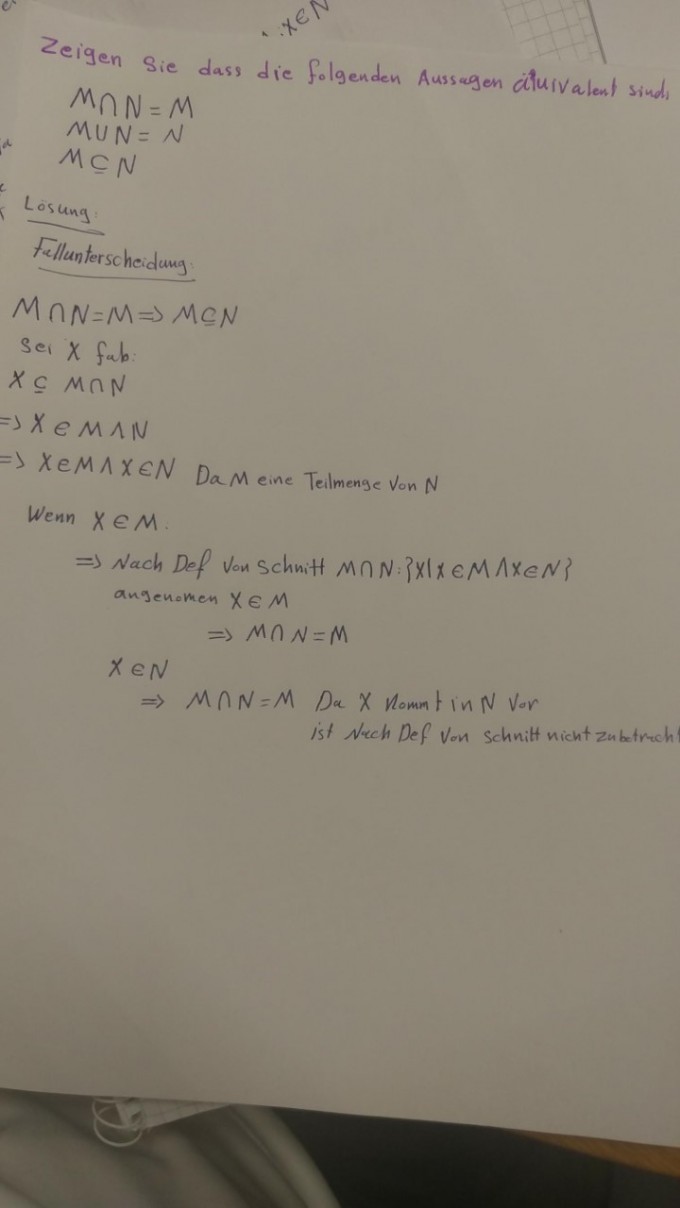 x∈N
Zeigen Sie dass die folgenden Aussagen äquivalent sind,
M∩N = M
M∪N = N
M⊆N
Lösung:
Fallunterscheidung:
M∩N=M=> M⊆N
Sei X fab:
X ⊆ M∩N
=> X ∈ M∧N
=> X∈M ∧ X∈N Da M eine Teilmenge von N
Wenn X∈M.
=> Nach Def von Schnitt M∩N:{X|X∈M∧X∈N}
angenomen X∈M
=> M∩N=M
X∈N
=> M∩N=M Da X kommt in N vor
ist Nach Def von Schnitt nicht zubetracht